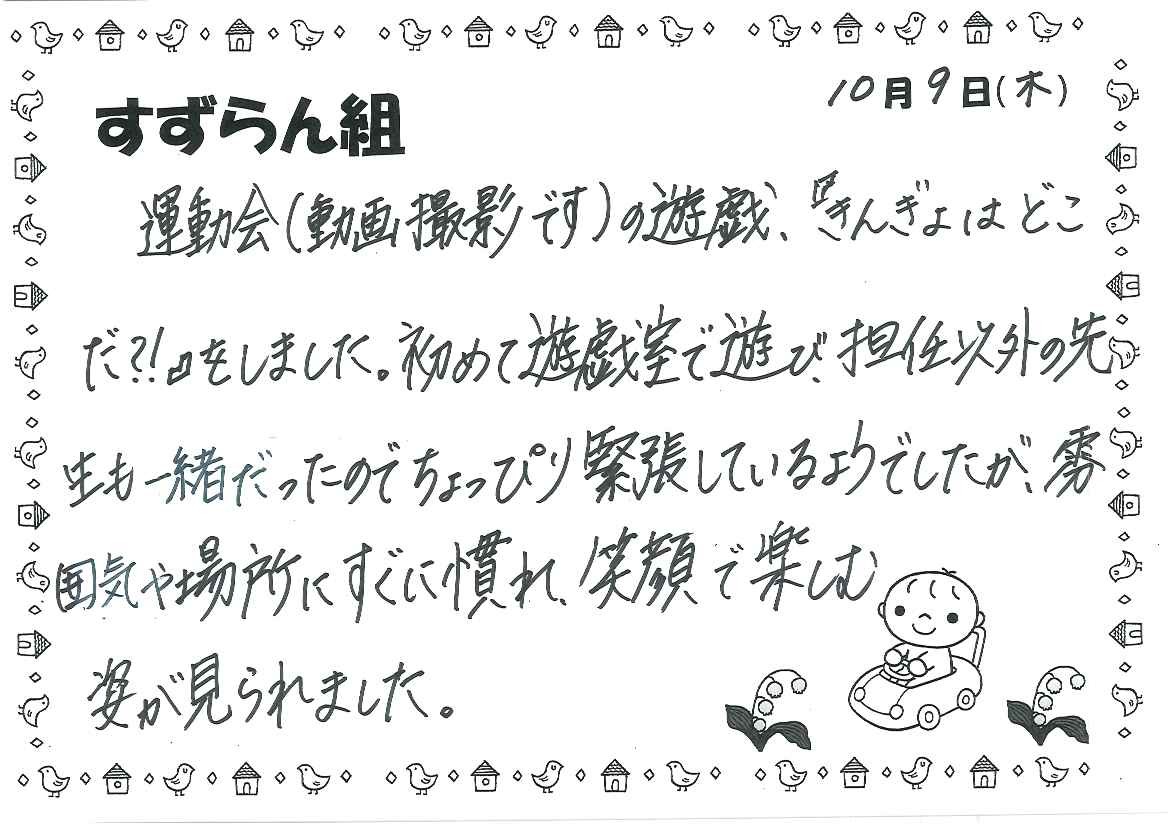 10月9日(木)
すずらん組
運動会(動画撮影です)の遊戯、『きんぎょはどこ
だ?!』をしました。初めて遊戯室で遊び、担任以外の先
生も一緒だったのでちょっぴり緊張しているようでしたが、雰
囲気や場所にすぐに慣れ、笑顔で楽しむ
姿が見られました。